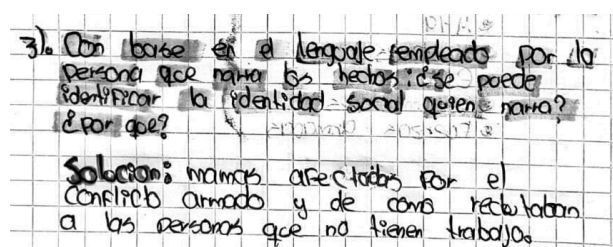 3). Con base en el lenguaje empleado por la
persona que narra los hechos: ¿se puede
identificar la identidad social quien narra?
¿por que?
Solocion: mamas afectadas por el
conflicto armado y de como reclutaban
a las personas que no tienen trabajo.